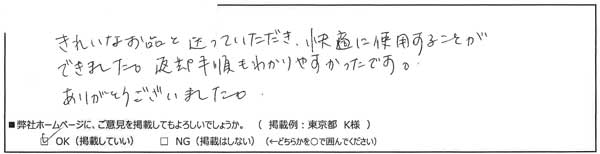 きれいなお品を送っていただき、快適に使用することが
できました。返却手順もわかりやすかったです。
ありがとうございました。
■弊社ホームページに、ご意見を掲載してもよろしいでしょうか。 （ 掲載例：東京都 K様 ）
☑ OK（掲載していい） □ NG（掲載はしない）（←どちらかを○で囲んでください）